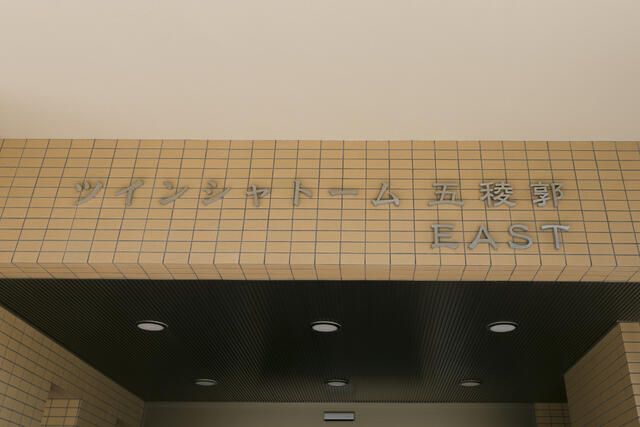 ツインシャトーム 五稜郭
EAST